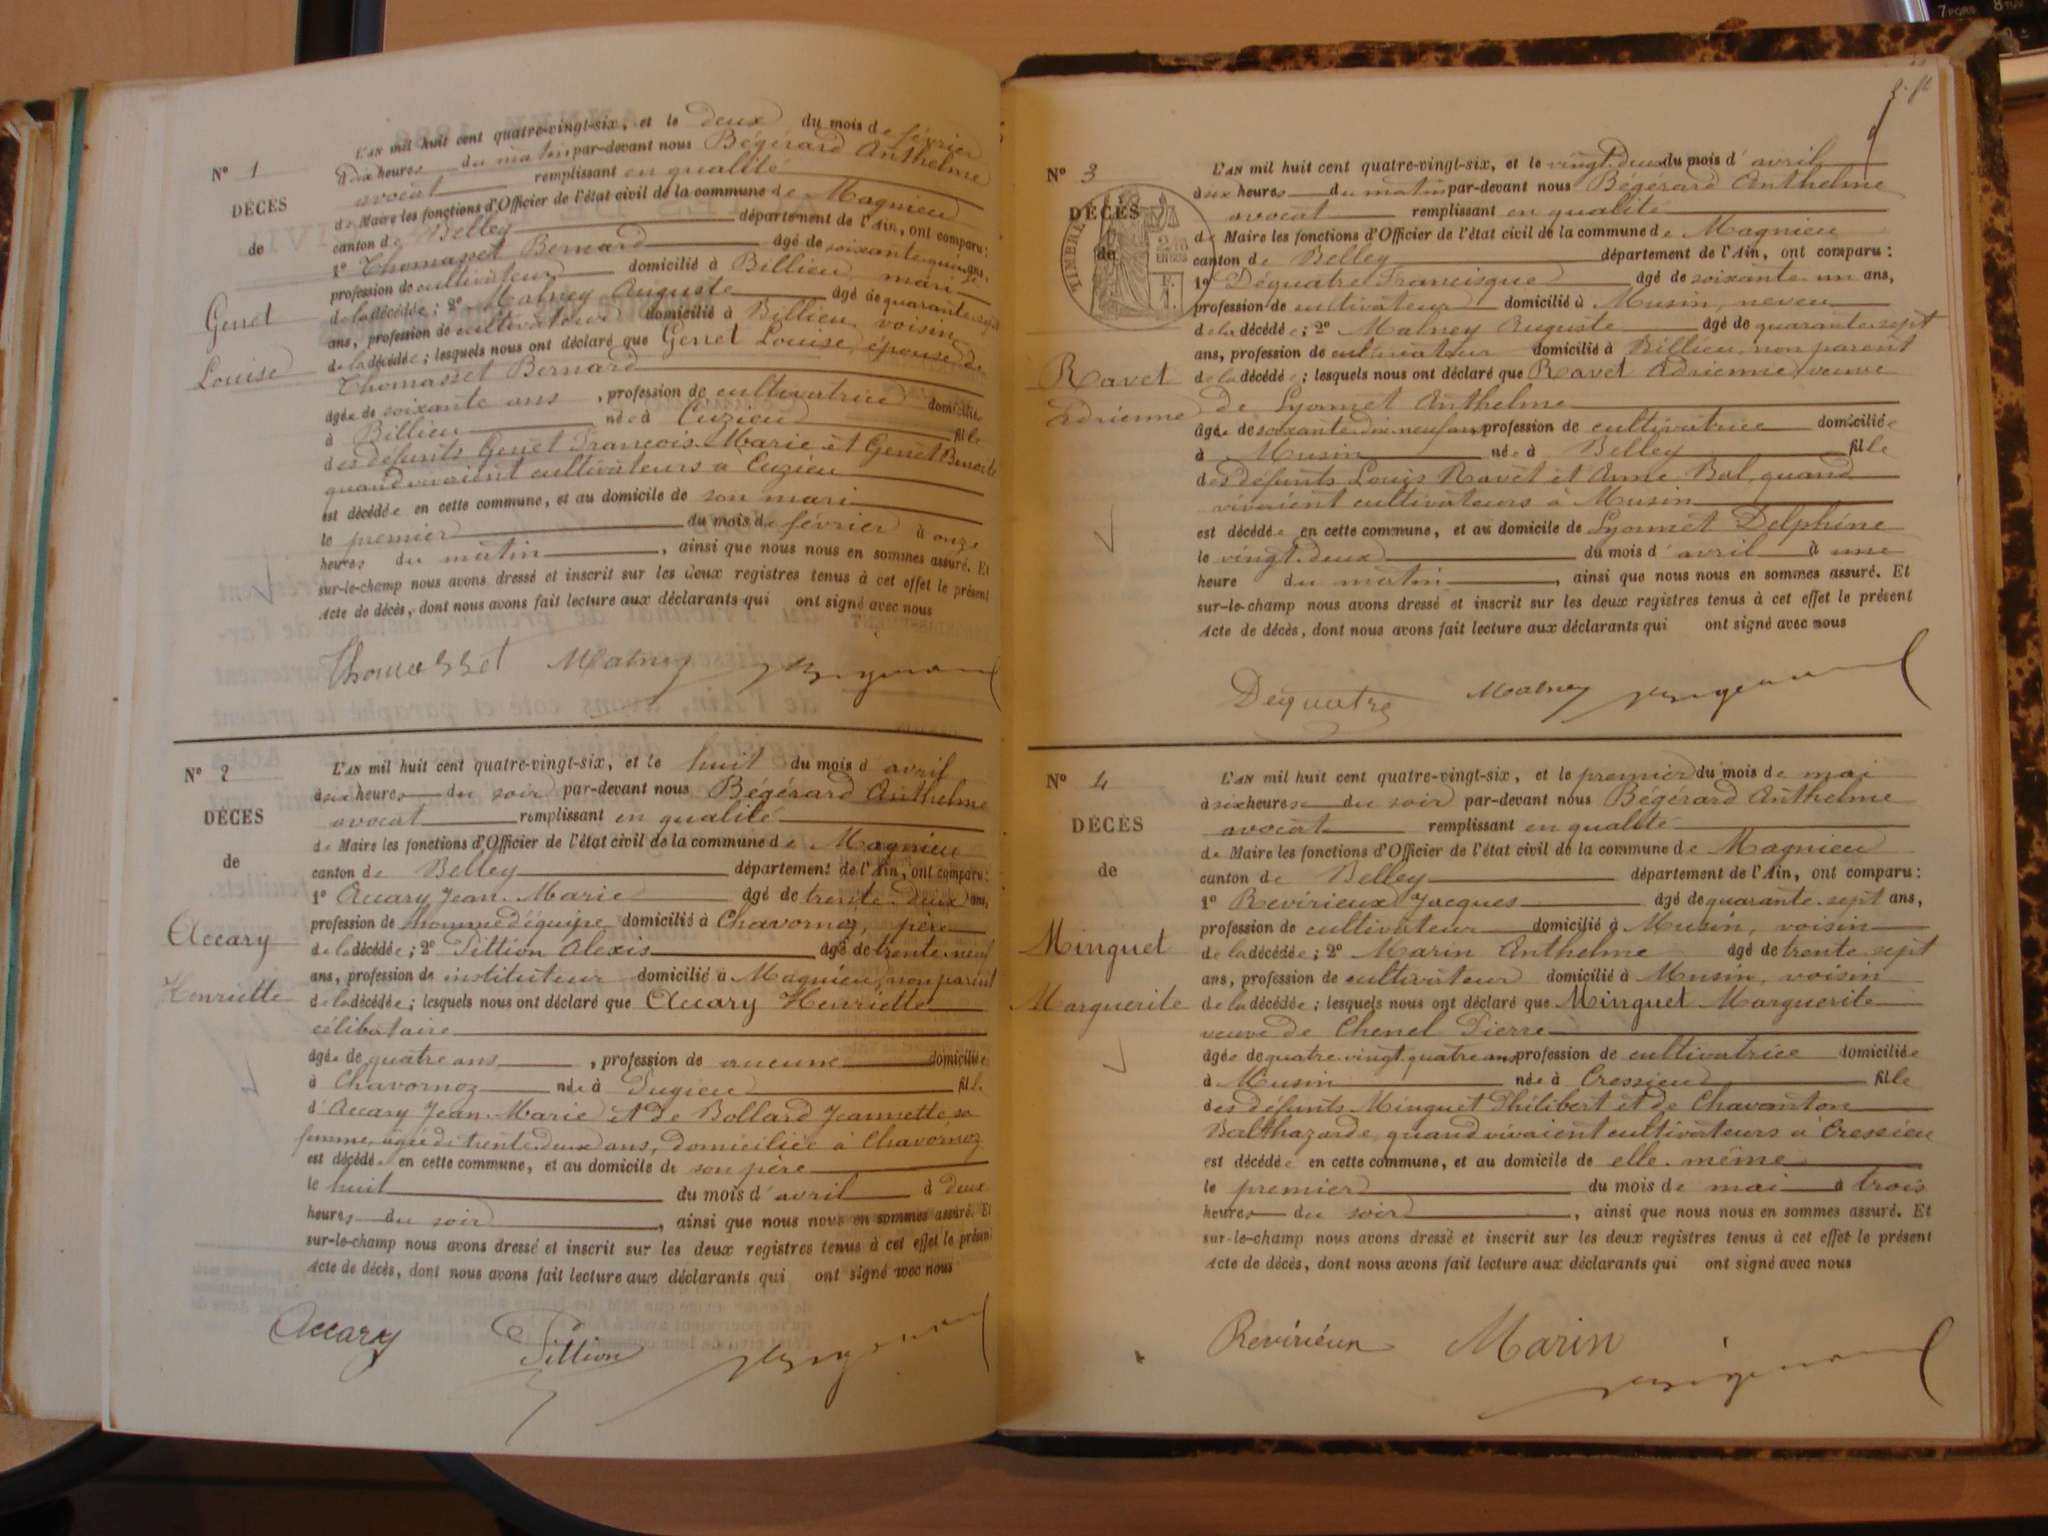 N° 1
DÉCÈS
de
Genet
Louise
L'AN mil huit cent quatre-vingt-six, et le deux du mois de février
à dix heures du matin par-devant nous Bégérard Anthelme
avocat remplissant en qualité
de Maire les fonctions d'Officier de l'état civil de la commune de Magnieu
canton de Belley département de l'Ain, ont comparu :
1° Thomasset Bernard âgé de soixante quinze ans,
profession de cultivateur domicilié à Billieu, mari
de la décédée ; 2° Malney Auguste âgé de quarante sept
ans, profession de cultivateur domicilié à Billieu, voisin
de la décédée ; lesquels nous ont déclaré que Genet Louise, épouse de
Thomasset Bernard
âgée de soixante ans , profession de cultivatrice domiciliée
à Billieu née à Cuzieu fille
des défunts Genet François-Marie et Genet Benoite
quand vivaient cultivateurs à Cuzieu
est décédée en cette commune, et au domicile de son mari
le premier du mois de février à onze
heures du matin , ainsi que nous nous en sommes assuré. Et
sur-le-champ nous avons dressé et inscrit sur les deux registres tenus à cet effet le présent
Acte de décès, dont nous avons fait lecture aux déclarants qui ont signé avec nous
Thomasset Malney
N° 2
DÉCÈS
de
Accary
Henriette
L'AN mil huit cent quatre-vingt-six, et le huit du mois d'avril
à six heures du soir par-devant nous Bégérard Anthelme
avocat remplissant en qualité
de Maire les fonctions d'Officier de l'état civil de la commune de Magnieu
canton de Belley département de l'Ain, ont comparu :
1° Accary Jean-Marie âgé de trente-deux ans,
profession de homme d'équipe domicilié à Chavornoz, père
de la décédée ; 2° Tittion Alexis âgé de trente-neuf
ans, profession de instituteur domicilié à Magnieu, non parent
de la décédée ; lesquels nous ont déclaré que Accary Henriette
célibataire
âgée de quatre ans , profession de aucune domiciliée
à Chavornoz née à Pugieu fille
d'Accary Jean-Marie et de Bollard Jeannette sa
femme, agée de trente-deux ans, domiciliée à Chavornoz
est décédée en cette commune, et au domicile de son père
le huit du mois d'avril à deux
heures du soir , ainsi que nous nous en sommes assuré. Et
sur-le-champ nous avons dressé et inscrit sur les deux registres tenus à cet effet le présent
Acte de décès, dont nous avons fait lecture aux déclarants qui ont signé avec nous
Accary Tittion
N° 3
DÉCÈS
de
TIMBRE
Ravet
Adrienne
L'AN mil huit cent quatre-vingt-six, et le vingt-deux du mois d'avril
à six heures du matin par-devant nous Bégérard Anthelme
avocat remplissant en qualité
de Maire les fonctions d'Officier de l'état civil de la commune de Magnieu
canton de Belley département de l'Ain, ont comparu :
1° Déquatre Francisque âgé de soixante-un ans,
profession de cultivateur domicilié à Musin, neveu
de la décédée ; 2° Malney Auguste âgé de quarante-sept
ans, profession de cultivateur domicilié à Billieu, non parent
de la décédée ; lesquels nous ont déclaré que Ravet Adrienne, veuve
de Lyonnet Anthelme
âgée de soixante-dix-neuf ans, profession de cultivatrice domiciliée
à Musin née à Belley fille
des défunts Louis Ravet et Anne Bal, quand
vivaient cultivateurs à Musin
est décédée en cette commune, et au domicile de Lyonnet Delphine
le vingt-deux du mois d'avril à une
heure du matin , ainsi que nous nous en sommes assuré. Et
sur-le-champ nous avons dressé et inscrit sur les deux registres tenus à cet effet le présent
Acte de décès, dont nous avons fait lecture aux déclarants qui ont signé avec nous
Dequatre Malney
N° 4
DÉCÈS
de
Minguet
Marguerite
L'AN mil huit cent quatre-vingt-six, et le premier du mois de mai
à six heures du soir par-devant nous Bégérard Anthelme
avocat remplissant en qualité
de Maire les fonctions d'Officier de l'état civil de la commune de Magnieu
canton de Belley département de l'Ain, ont comparu :
1° Revirieux Jacques âgé de quarante-sept ans,
profession de cultivateur domicilié à Musin, voisin
de la décédée ; 2° Marin Anthelme âgé de trente-sept
ans, profession de cultivateur domicilié à Musin, voisin
de la décédée ; lesquels nous ont déclaré que Minguet Marguerite
veuve de Chenel Pierre
âgée de quatre-vingt-quatre ans, profession de cultivatrice domiciliée
à Musin née à Cressieu fille
des défunts Minguet Philibert et de Chavanton
Balthazarde, quand vivaient cultivateurs à Cressieu
est décédée en cette commune, et au domicile de elle-même
le premier du mois de mai à trois
heures du soir , ainsi que nous nous en sommes assuré. Et
sur-le-champ nous avons dressé et inscrit sur les deux registres tenus à cet effet le présent
Acte de décès, dont nous avons fait lecture aux déclarants qui ont signé avec nous
Revirieux Marin